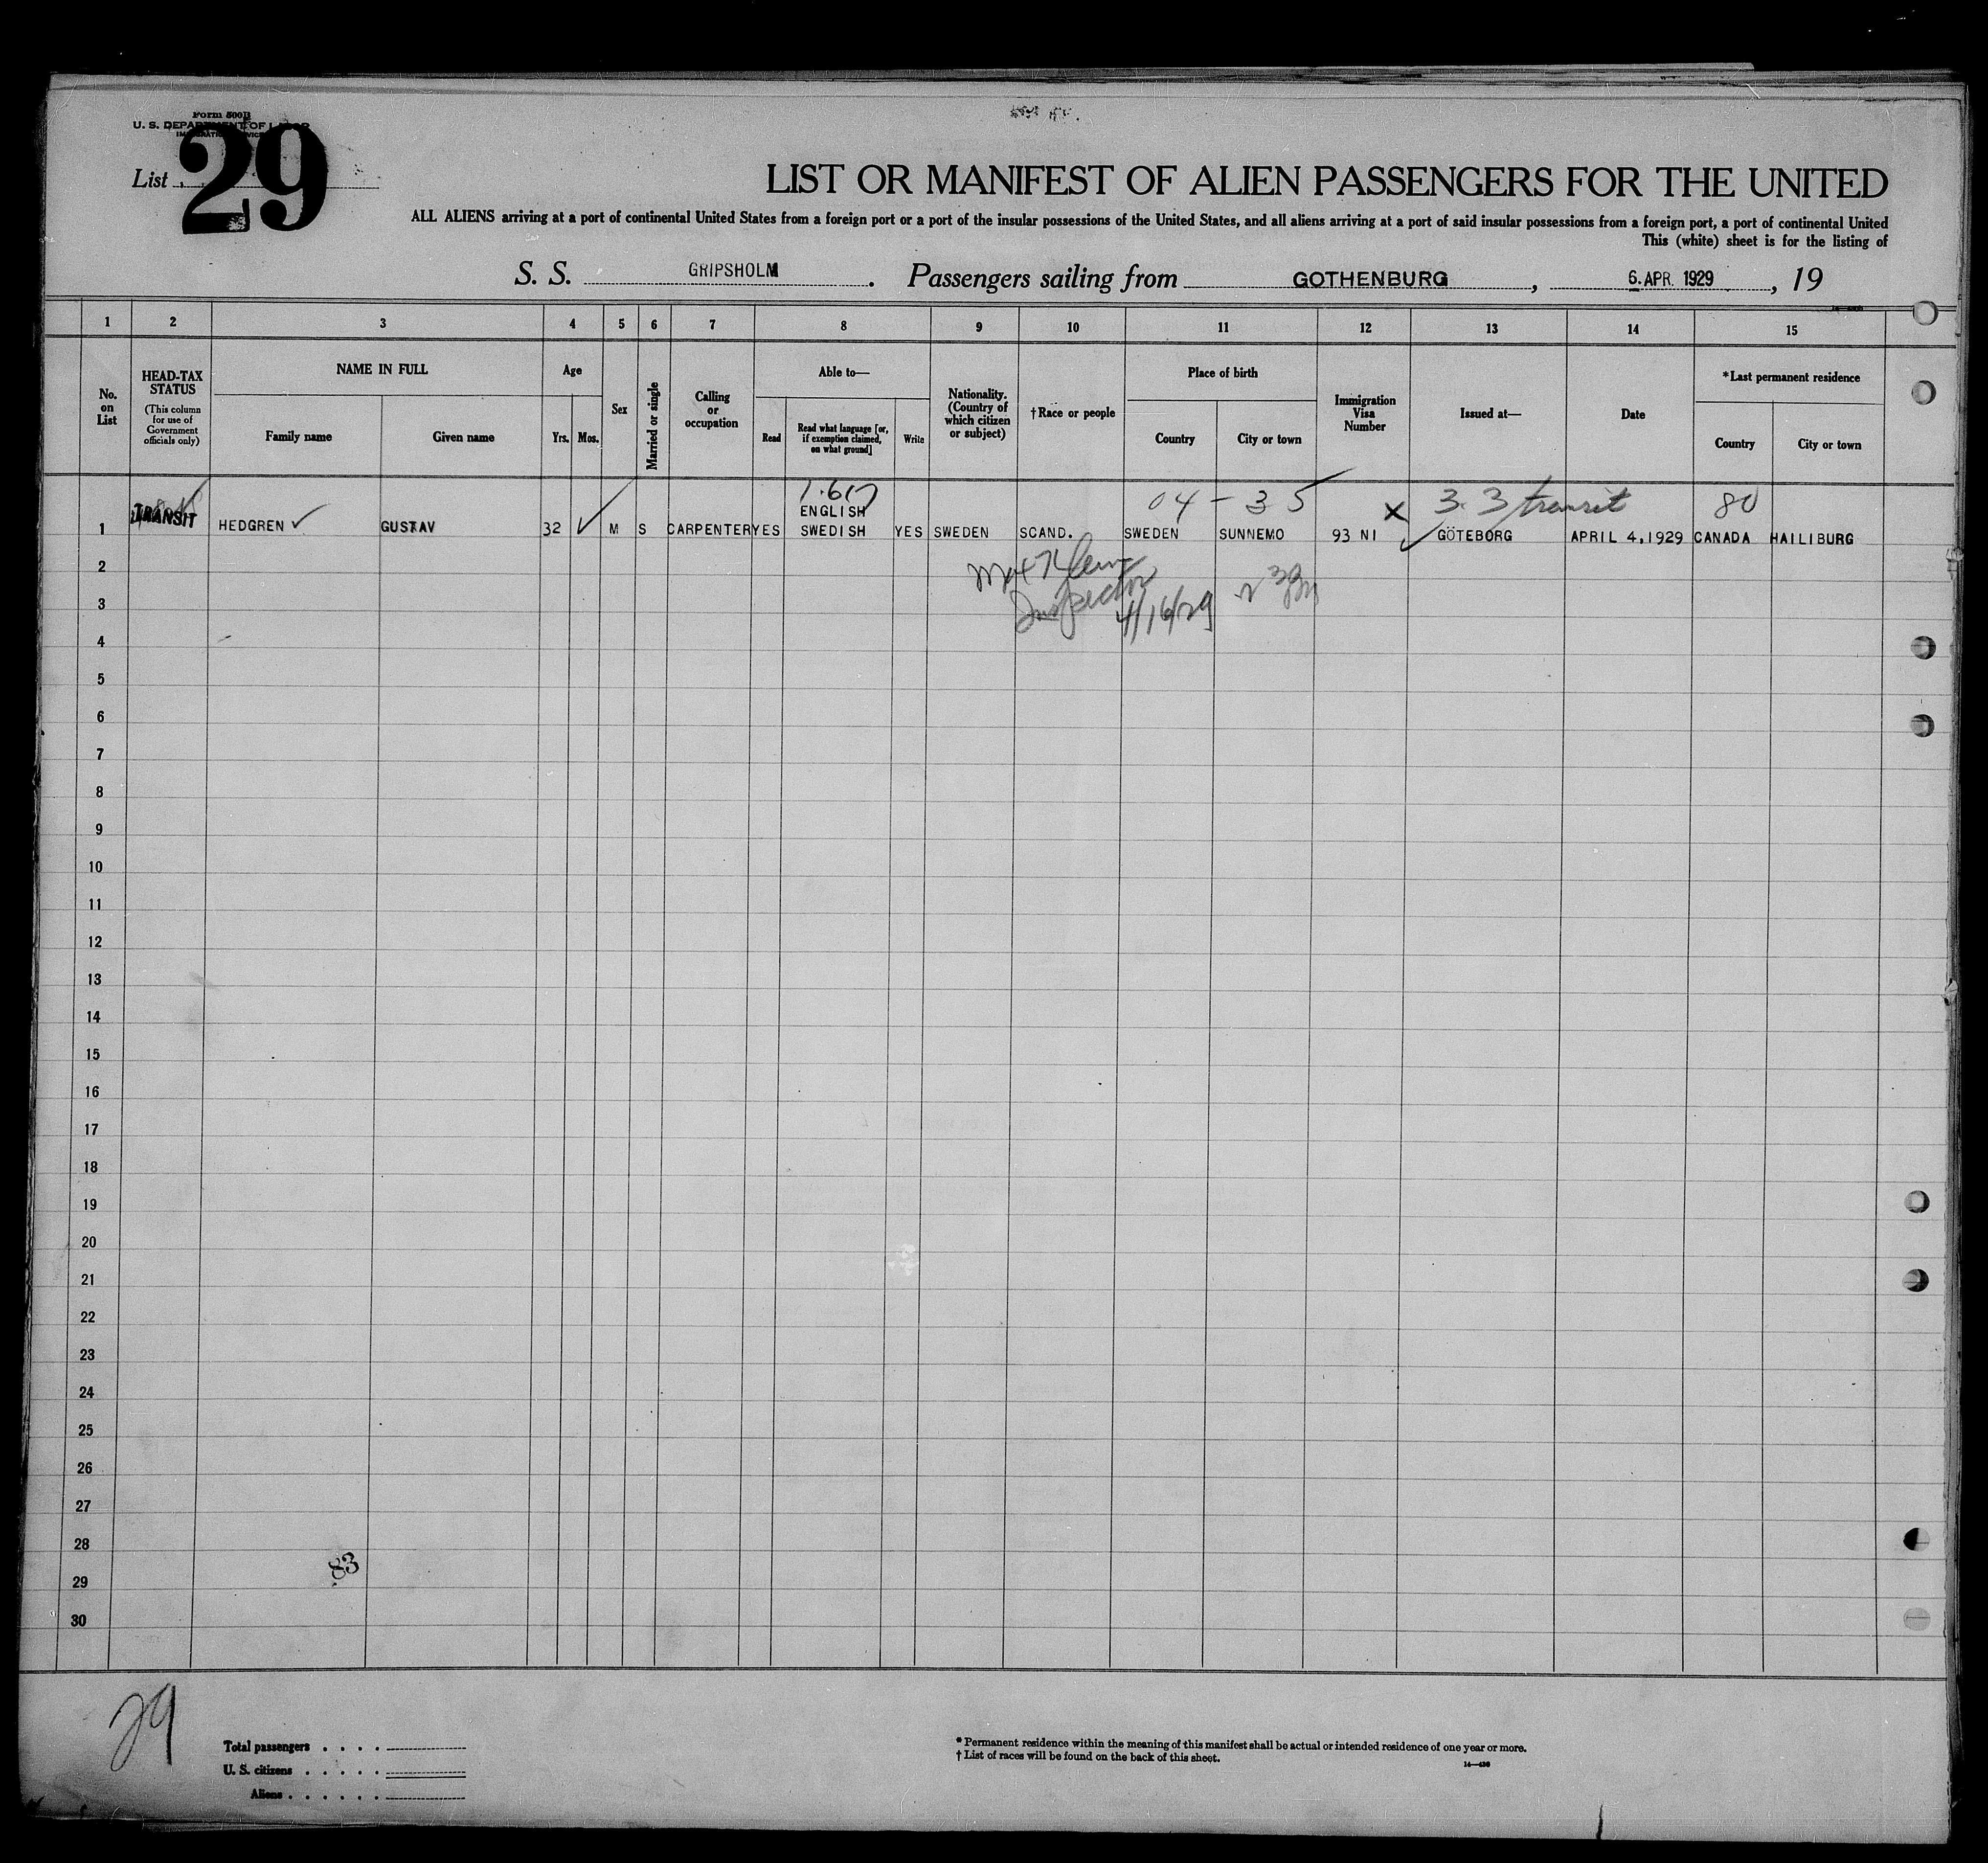 Form 500B
U. S. DEPARTMENT OF LABOR
IMMIGRATION SERVICE
List 29
LIST OR MANIFEST OF ALIEN PASSENGERS FOR THE UNITED
ALL ALIENS arriving at a port of continental United States from a foreign port or a port of the insular possessions of the United States, and all aliens arriving at a port of said insular possessions from a foreign port, a port of continental United
This (white) sheet is for the listing of
S. S. GRIPSHOLM. Passengers sailing from GOTHENBURG, 6. APR. 1929, 19
1 2 3 4 5 6 7 8 9 10 11 12 13 14 15
No. on List
HEAD-TAX STATUS
(This column for use of Government officials only)
NAME IN FULL
Family name
Given name
Age
Yrs.
Mos.
Sex
Married or single
Calling or occupation
Able to—
Read
Read what language [or, if exemption claimed, on what ground]
Write
Nationality. (Country of which citizen or subject)
†Race or people
Place of birth
Country
City or town
Immigration Visa Number
Issued at—
Date
*Last permanent residence
Country
City or town
04 - 35 3.3 transit 80
ENGLISH
1 TRANSIT HEDGREN GUSTAV 32 M S CARPENTER YES SWEDISH YES SWEDEN SCAND. SWEDEN SUNNEMO 93 NI GÖTEBORG APRIL 4, 1929 CANADA HAILIBURG
2
Inspector 4/16/29
3
4
5
6
7
8
9
10
11
12
13
14
15
16
17
18
19
20
21
22
23
24
25
26
27
28
83
29
30
29
Total passengers . . . .
U. S. citizens . . . . .
Aliens . . . . . .
* Permanent residence within the meaning of this manifest shall be actual or intended residence of one year or more.
† List of races will be found on the back of this sheet.